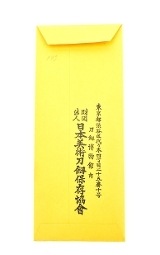 東京都渋谷区代々木四丁目二十五番十号
刀剣博物館内
財団
法人
日本美術刀劍保存協會